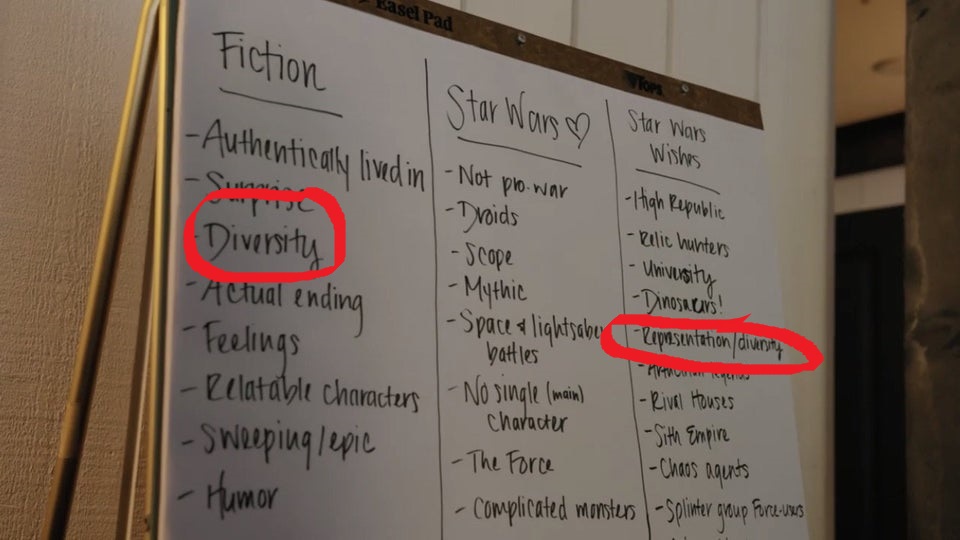 Easel Pad
TOPS
Fiction
- Authentically lived in
- Surprise
- Diversity
- Actual ending
- Feelings
- Relatable characters
- Sweeping/epic
- Humor
Star Wars ♡
- Not pro-war
- Droids
- Scope
- Mythic
- Space & lightsaber
battles
- No single (main)
character
- The Force
- Complicated monsters
Star Wars
Wishes
- High Republic
- Relic hunters
- University
- Dinosaurs!
- Representation/diversity
- legends
- Rival Houses
- Sith Empire
- Chaos agents
- Splinter group Force-users